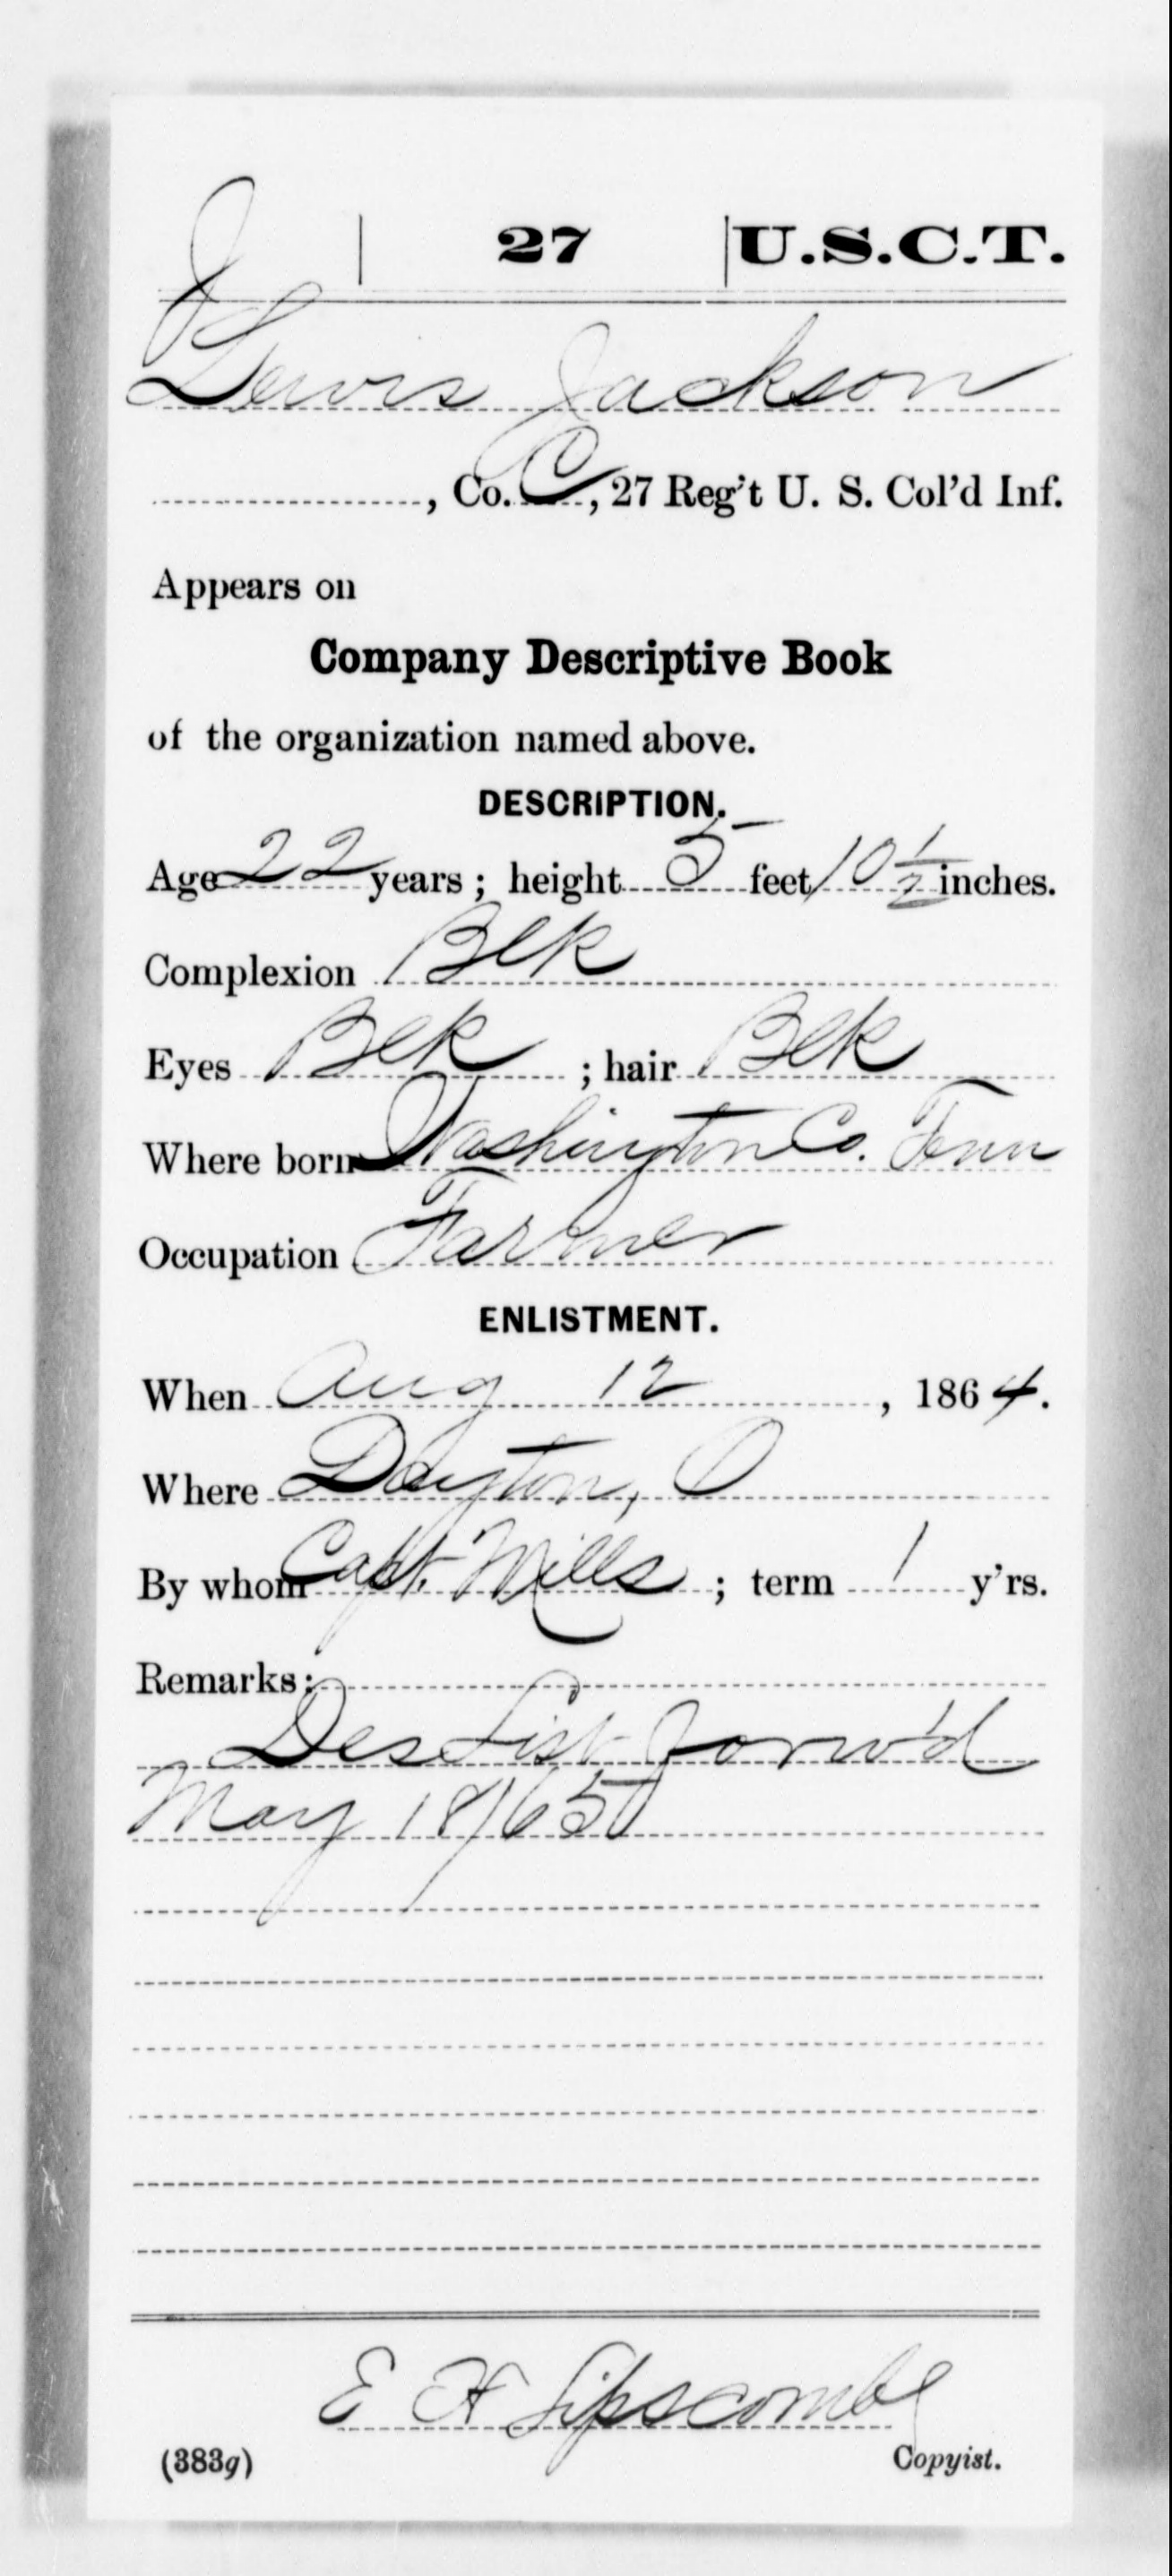 J | 27 | U.S.C.T.
Lewis Jackson
, Co. C, 27 Reg't U. S. Col'd Inf.
Appears on
Company Descriptive Book
of the organization named above.
DESCRIPTION.
Age 22 years; height 5 feet 10 1/2 inches.
Complexion Blk
Eyes Blk ; hair Blk
Where born Washington Co. Tenn
Occupation Farmer
ENLISTMENT.
When Aug 12, 1864.
Where Dayton, O
By whom Capt. Mills; term 1 y'rs.
Remarks:
Des List forw'd
May 18/65
E H Lipscombe
(383g) Copyist.